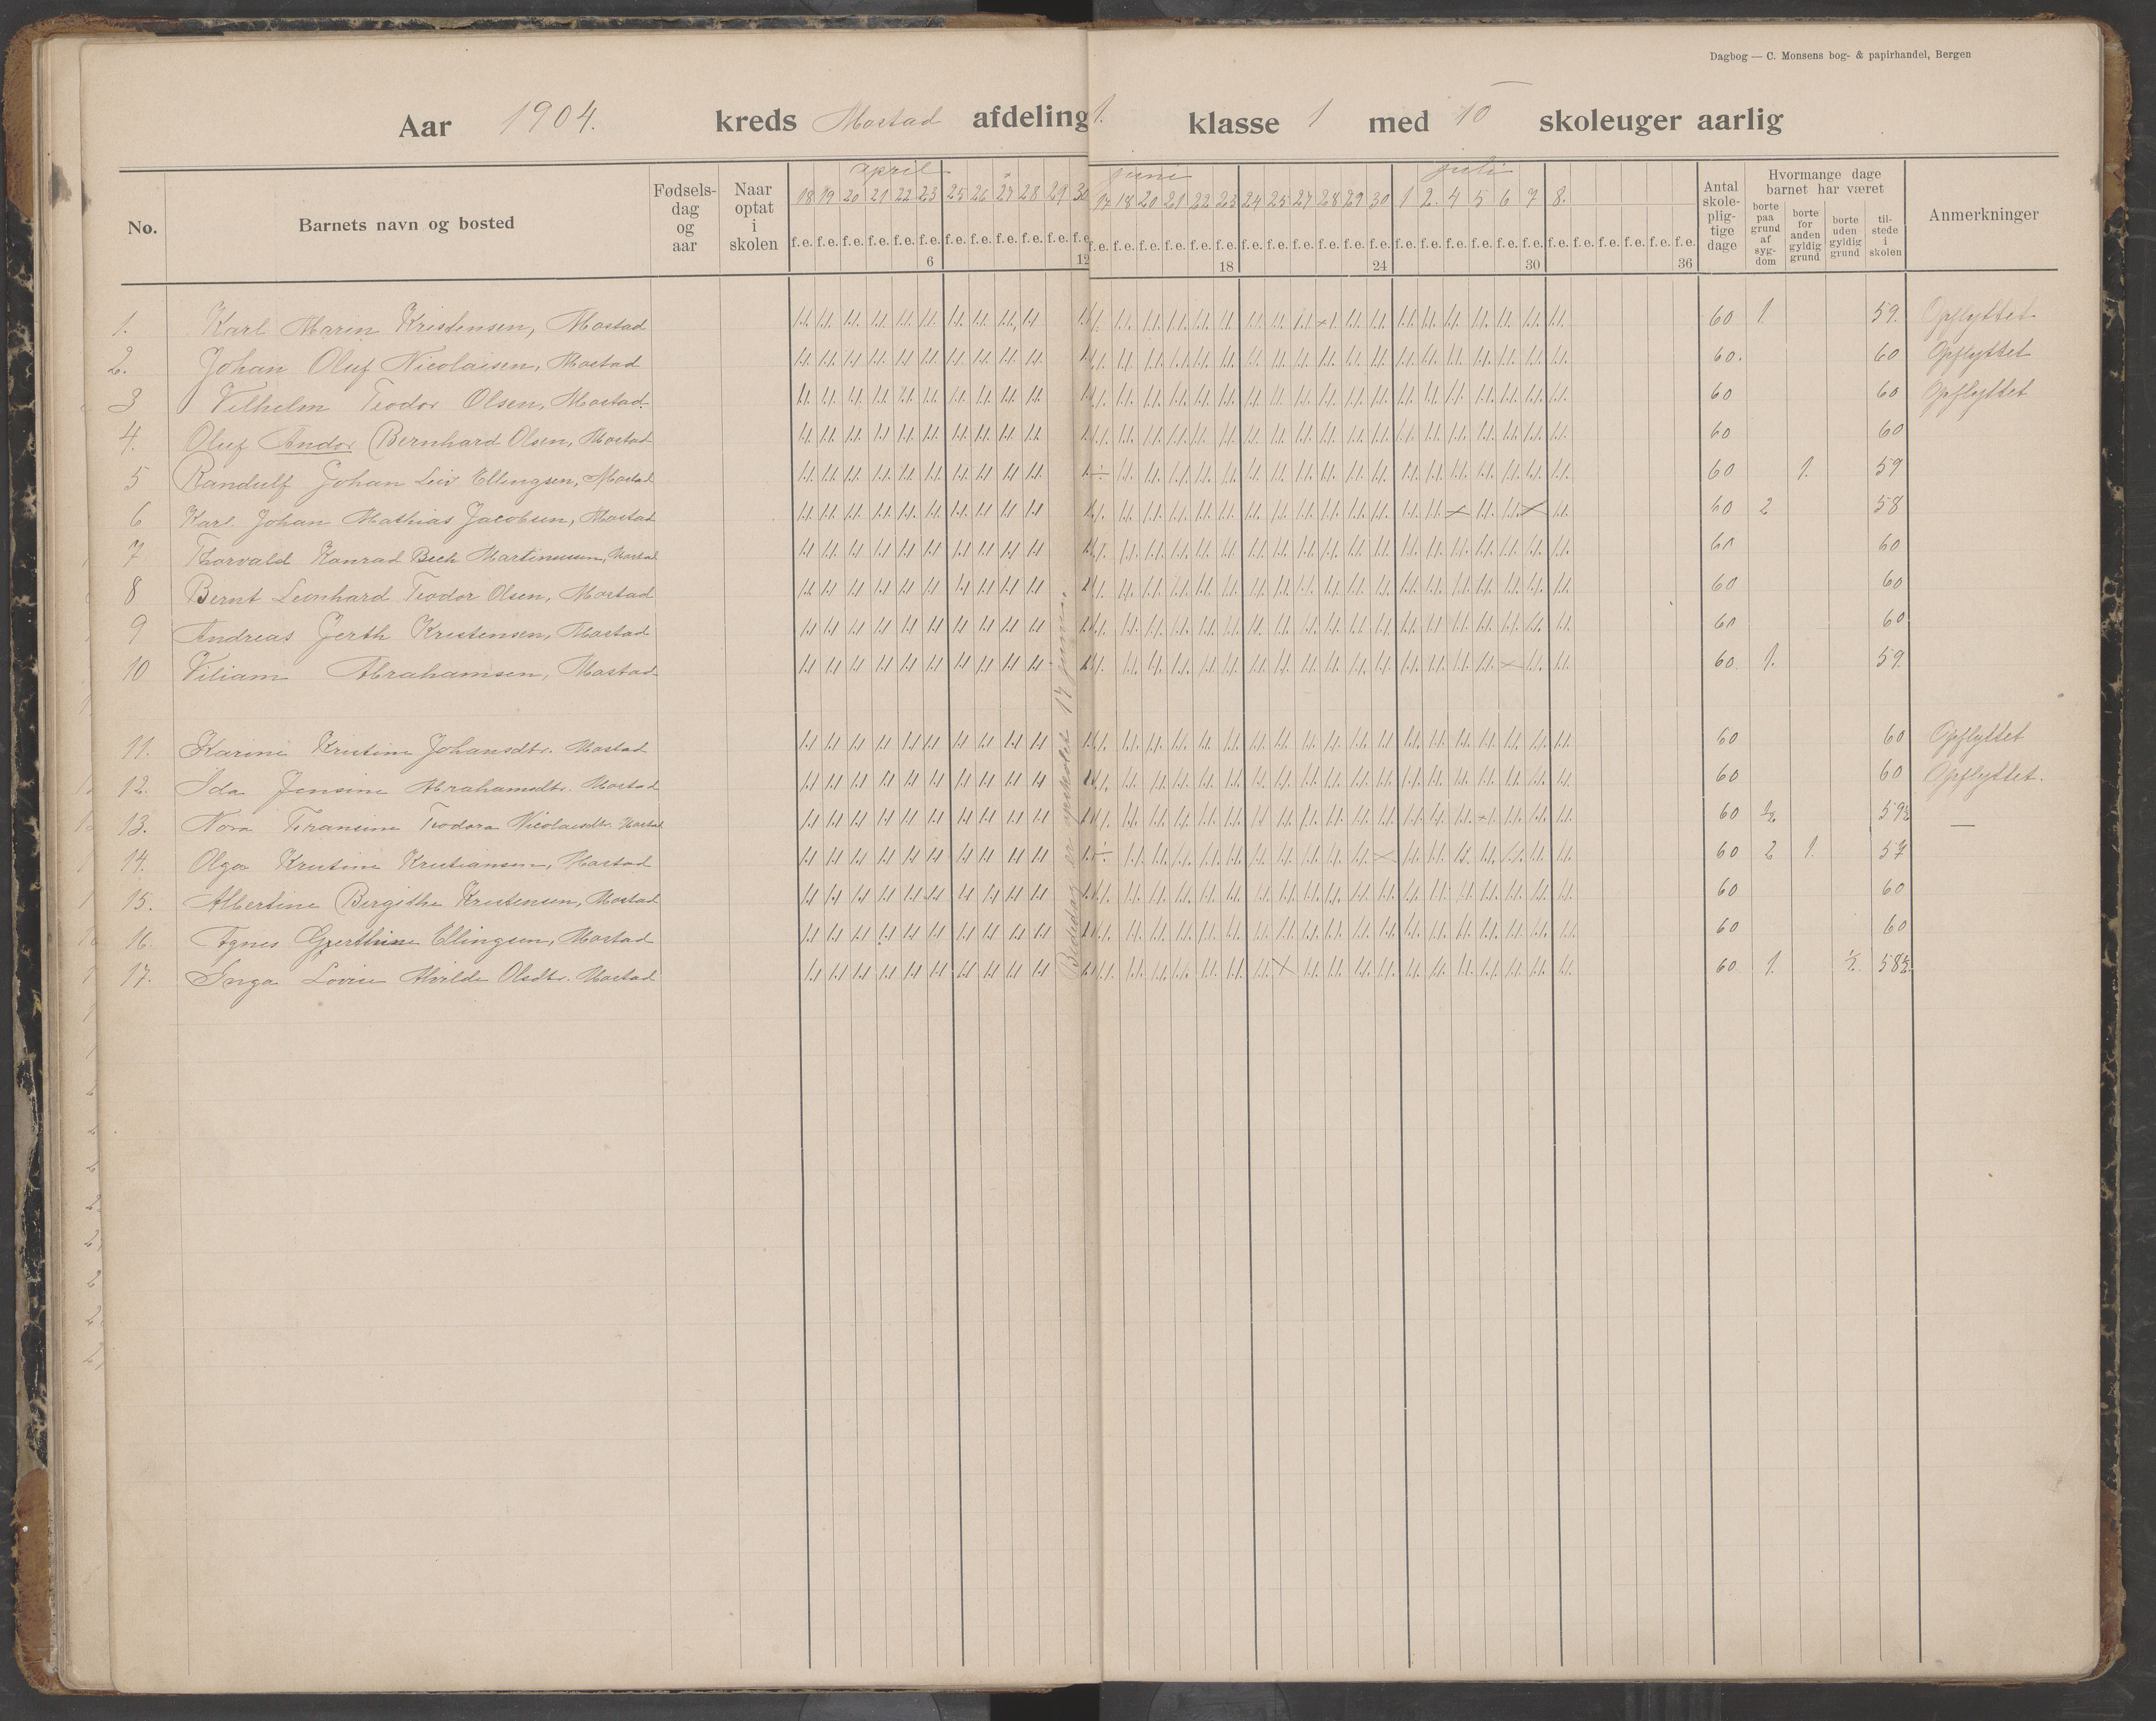 Dagbog — C. Monsens bog- & papirhandel, Bergen
Aar 1904. kreds Mostad afdeling 1. klasse 1 med 10 skoleuger aarlig
No. Barnets navn og bosted Fødsels-dag og aar Naar optat i skolen april juni juli Antal skole-plig-tige dage Hvormange dage barnet har været Anmerkninger
18 19 20 21 22 23 25 26 27 28 29 30 17 18 20 21 22 23 24 25 27 28 29 30 1 2. 4 5 6 7 8.
borte paa grund af syg-dom borte for anden gyldig grund borte uden gyldig grund til-stede i skolen
f.e. f.e. f.e. f.e. f.e. f.e. f.e. f.e. f.e. f.e. f.e. f.e. f.e. f.e. f.e. f.e. f.e. f.e. f.e. f.e. f.e. f.e. f.e. f.e. f.e. f.e. f.e. f.e. f.e. f.e. f.e. f.e. f.e. f.e. f.e. f.e.
6 12 18 24 30 36
1. Karl Maren Kristensen, Mostad 60 1 59. Opflyttet
2. Johan Oluf Nicolaisen, Mostad 60. 60 Opflyttet
3 Vilhelm Teodor Olsen, Mostad. 60 60 Opflyttet
4. Oluf Andor Bernhard Olsen, Mostad 60 60
5 Randulf Johan Leiv Ellingsen, Mostad 60 1. 59
6 Karl Johan Mathias Jacobsen, Mostad 60 2 58
7 Thorvald Konrad Bech Martinussen, Mostad 60 60
8 Bernt Leonhard Teodor Olsen, Mostad 60 60
9 Andreas Gerth Kristensen, Mostad 60 60
10 Viliam Abrahamsen, Mostad 60. 1. 59.
11. Karine Kristine Johansdtr. Mostad 60 60 Opflyttet
12. Ida Jensine Abrahamsdtr. Mostad 60 60 Opflyttet.
13. Nora Fransine Teodora Nicolaisdtr. Mostad 60 ½ 59½ —
14. Olga Kristine Kristiansen, Mostad 60 2 1. 57
15. Albertine Bergithe Kristensen, Mostad 60 60
16. Agnes Gjerthine Ellingsen, Mostad 60 60
17. Inga Lovise Alvilde Olsdtr. Mostad 60 1. ½ 58½
Bededag er  17 juni.